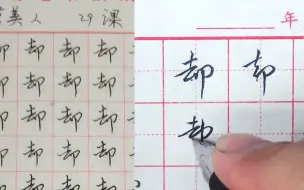 美人 29课
却 却 却 却 却
却 却 却 却 却
却 却 却 却 却
却 却 却 却 却
年
却 却
却